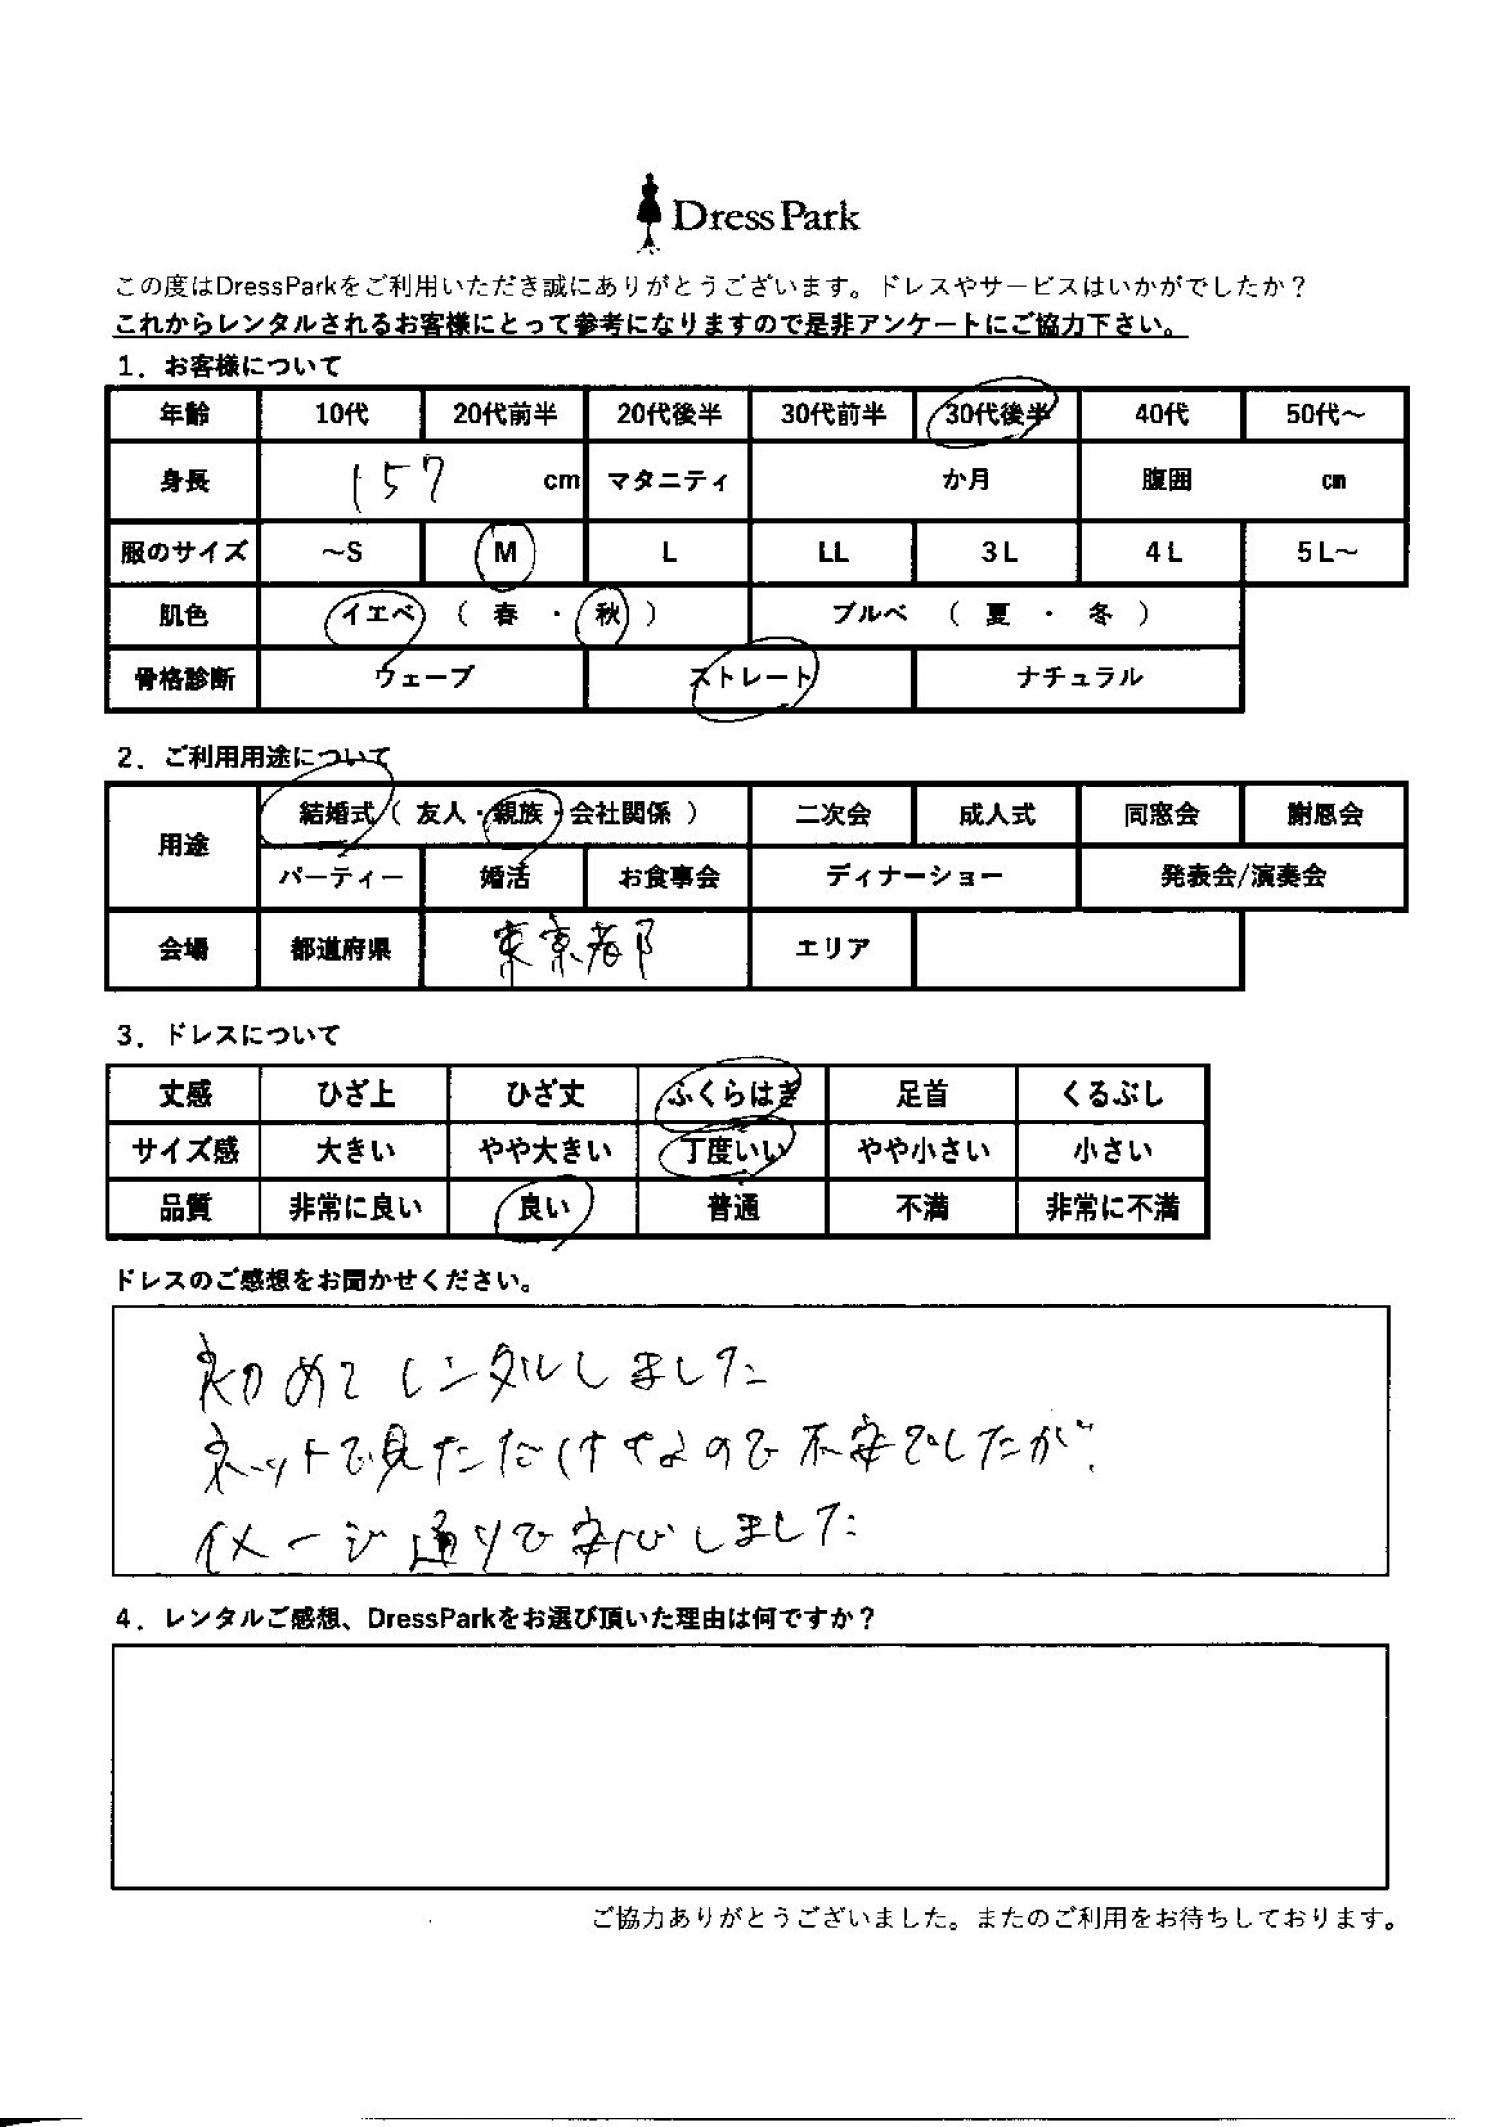 Dress Park
この度はDressParkをご利用いただき誠にありがとうございます。ドレスやサービスはいかがでしたか？
これからレンタルされるお客様にとって参考になりますので是非アンケートにご協力下さい。
1．お客様について
年齢 10代 20代前半 20代後半 30代前半 30代後半 40代 50代～
身長 157 cm マタニティ か月 腹囲 cm
服のサイズ ～S M L LL 3L 4L 5L～
肌色 イエベ （ 春 ・ 秋 ） ブルベ （ 夏 ・ 冬 ）
骨格診断 ウェーブ ストレート ナチュラル
2．ご利用用途について
用途 結婚式（ 友人・親族・会社関係 ） 二次会 成人式 同窓会 謝恩会
パーティー 婚活 お食事会 ディナーショー 発表会/演奏会
会場 都道府県 東京都 エリア
3．ドレスについて
丈感 ひざ上 ひざ丈 ふくらはぎ 足首 くるぶし
サイズ感 大きい やや大きい 丁度いい やや小さい 小さい
品質 非常に良い 良い 普通 不満 非常に不満
ドレスのご感想をお聞かせください。
初めてレンタルしました
ネットで見ただけなので不安でしたが、
イメージ通りで安心しました
4．レンタルご感想、DressParkをお選び頂いた理由は何ですか？
ご協力ありがとうございました。またのご利用をお待ちしております。